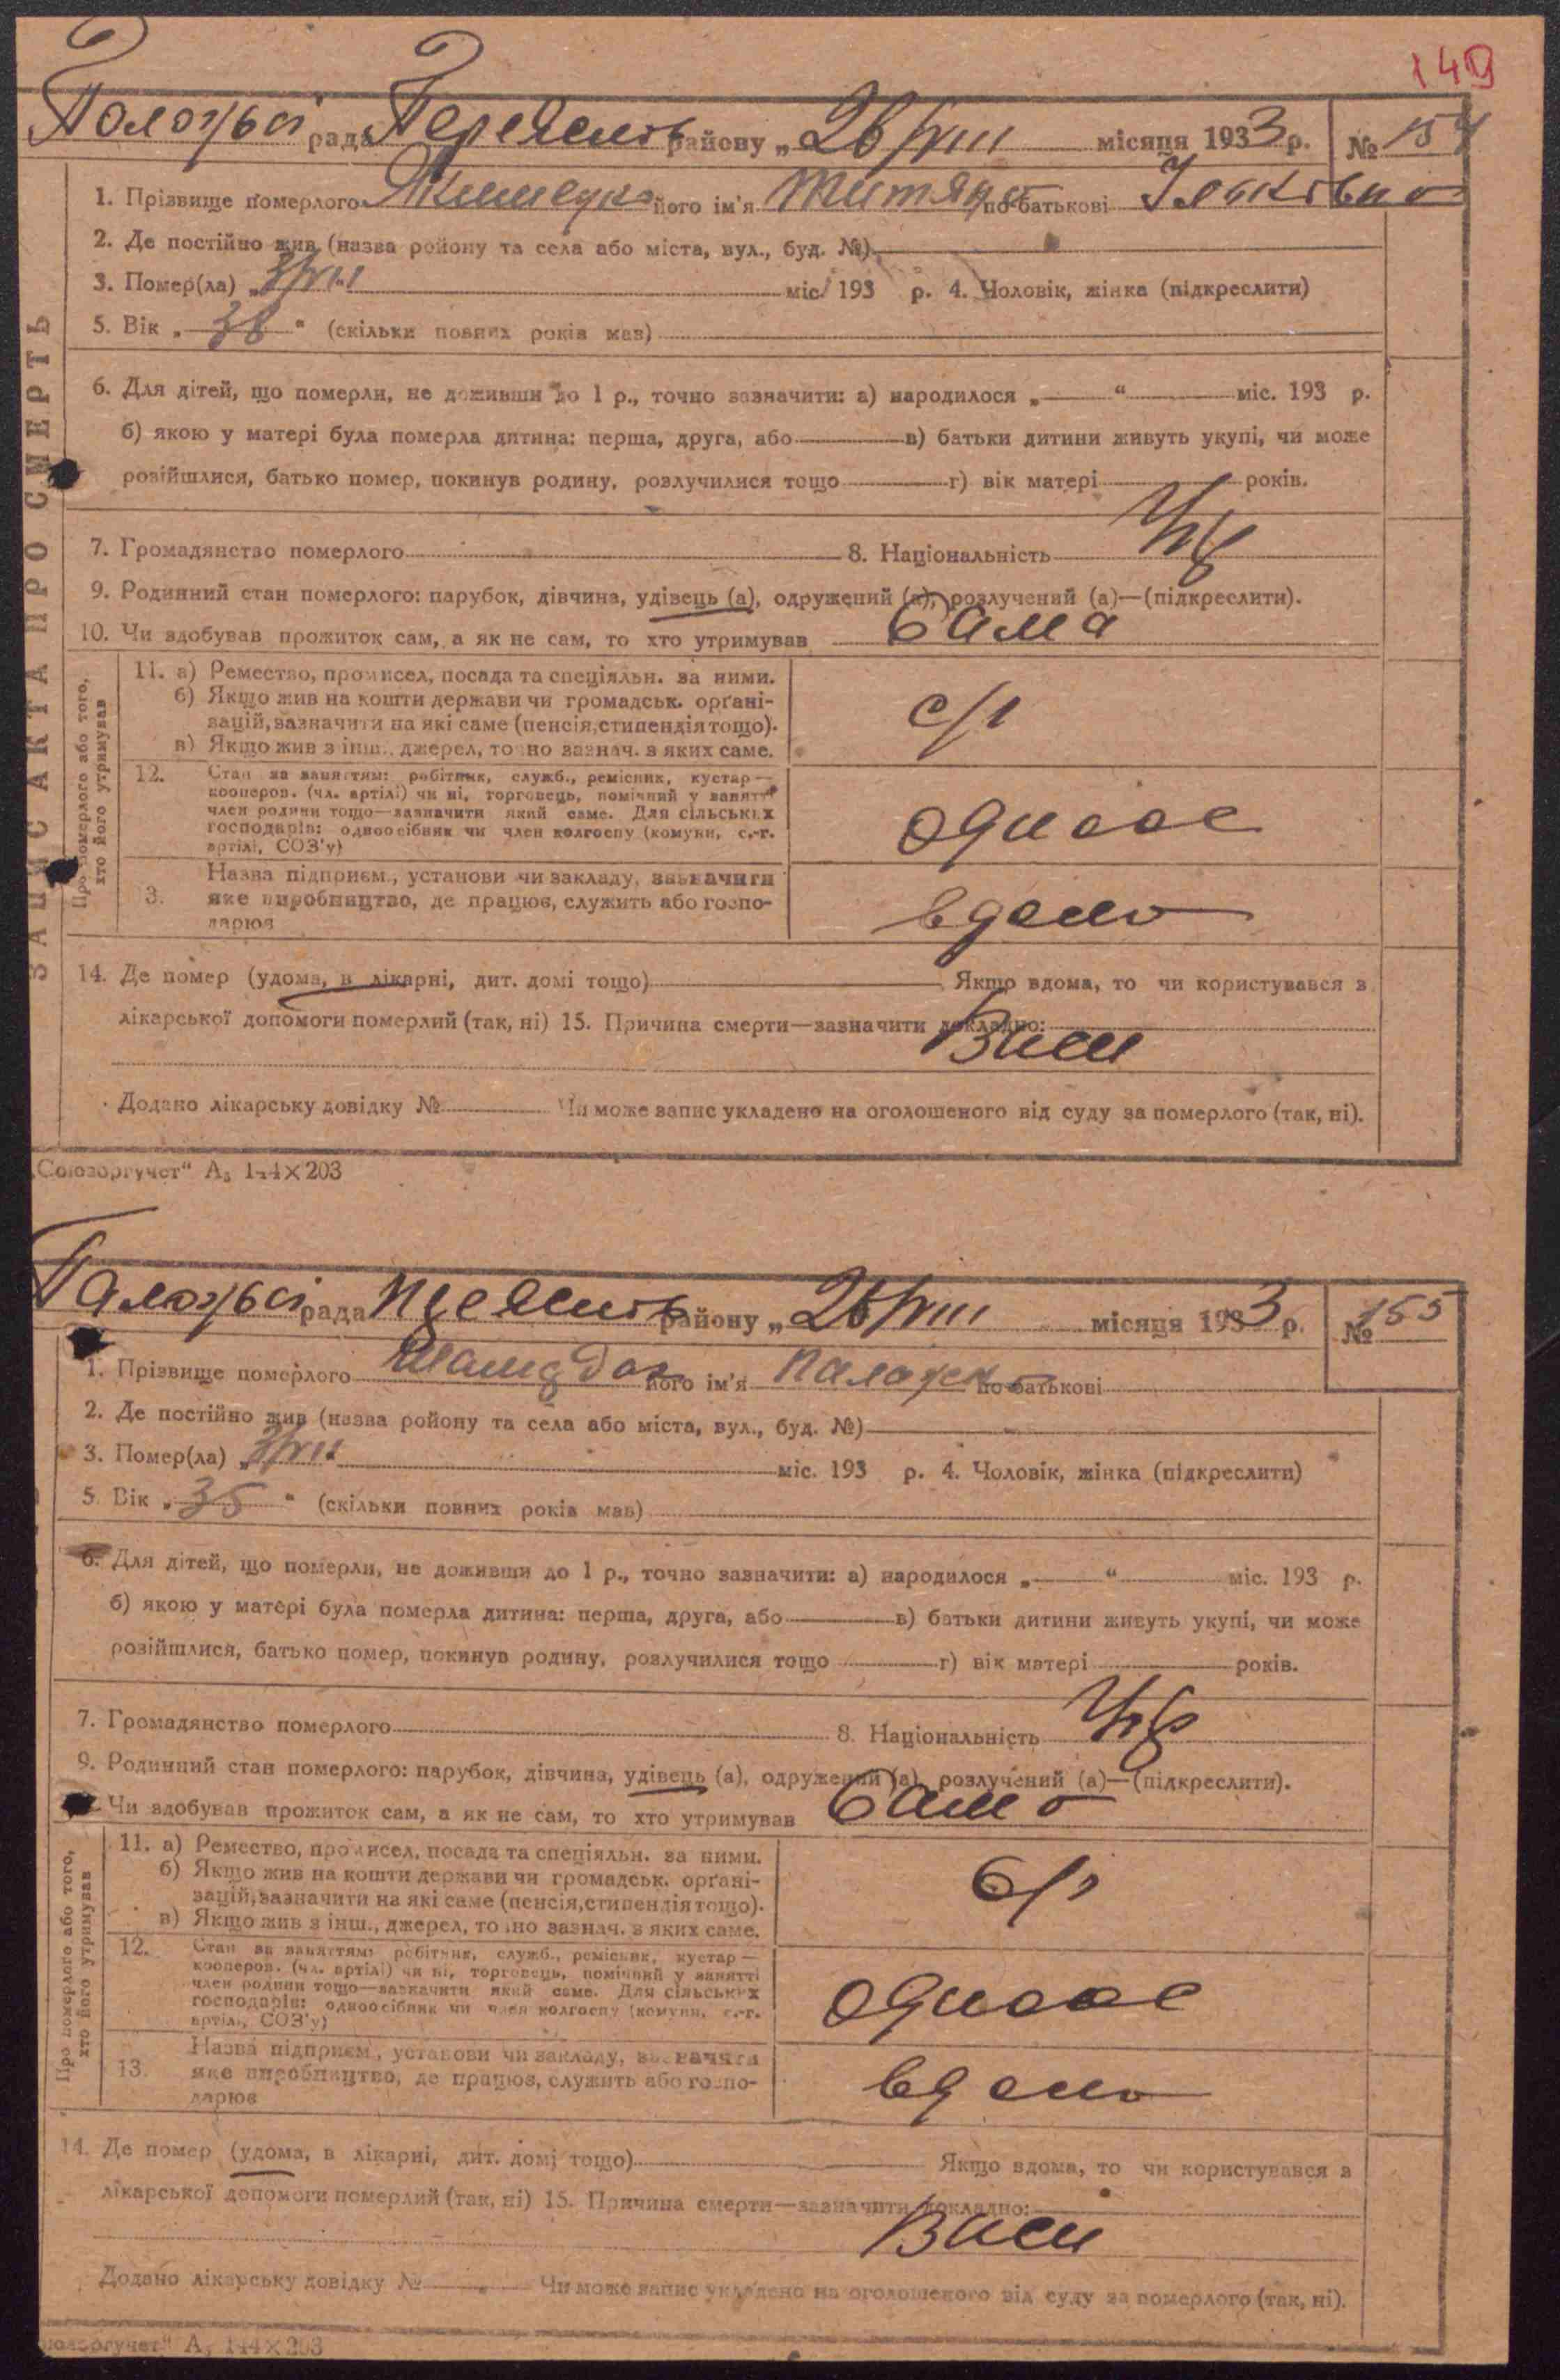 149
рада района „26/VIII місяця 1933 р. № 154
1. Прізвище померлого його ім'я по батькові
2. Де постійно жив (назва ройону та села або міста, вул., буд. №)
3. Помер(ла) „ міс. 193 р. 4. Чоловік, жінка (підкреслити)
5. Вік „38“ (скільки повних років мав)
6. Для дітей, що померли, не доживши до 1 р., точно зазначити: а) народилося „ “ міс. 193 р.
б) якою у матері була померла дитина: перша, друга, або в) батьки дитини живуть укупі, чи може
розійшлися, батько помер, покинув родину, розлучилися тощо г) вік матері років.
7. Громадянство померлого 8. Національність Укр
9. Родинний стан померлого: парубок, дівчина, удівець (а), одружений (а), розлучений (а)—(підкреслити).
10. Чи здобував прожиток сам, а як не сам, то хто утримував сама
ЗАПИС АКТА ПРО СМЕРТЬ
Про померлого або того, хто його утримував
11. а) Ремество, промисел, посада та спеціяльн. за ними.
б) Якщо жив на кошти держави чи громадськ. орґані-
зацій, зазначити на які саме (пенсія, стипендія тощо).
в) Якщо жив з інш. джерел, точно зазнач. з яких саме.
с/г
12. Стан за заняттям: робітник, служб., ремісник, кустар—
кооперов. (чл. артілі) чи ні, торговець, помічний у занятті
член родини тощо—зазначити який саме. Для сільських
господарів: одноосібник чи член колгоспу (комуни, с.-г.
артілі, СОЗ'у)
одноос
Назва підприєм., установи чи закладу, зазначити
3. яке виробництво, де працює, служить або госпо-
дарює
вдома
14. Де помер (удома, в лікарні, дит. домі тощо) Якщо вдома, то чи користувався з
лікарської допомоги померлий (так, ні) 15. Причина смерти—зазначити докладно:
Додано лікарську довідку № Чи може запис укладено на оголошеного від суду за померлого (так, ні).
„Союзоргучет“ А₅ 144×203
рада району „26/VIII місяця 1933 р. № 155
1. Прізвище померлого його ім'я по батькові
2. Де постійно жив (назва ройону та села або міста, вул., буд. №)
3. Помер(ла) „ міс. 193 р. 4. Чоловік, жінка (підкреслити)
5. Вік „35“ (скільки повних років мав)
6. Для дітей, що померли, не доживши до 1 р., точно зазначити: а) народилося „ “ міс. 193 р.
б) якою у матері була померла дитина: перша, друга, або в) батьки дитини живуть укупі, чи може
розійшлися, батько помер, покинув родину, розлучилися тощо г) вік матері років.
7. Громадянство померлого 8. Національність Укр
9. Родинний стан померлого: парубок, дівчина, удівець (а), одружений (а), розлучений (а)—(підкреслити).
Чи здобував прожиток сам, а як не сам, то хто утримував сама
Про померлого або того, хто його утримував
11. а) Ремество, промисел, посада та спеціяльн. за ними.
б) Якщо жив на кошти держави чи громадськ. орґані-
зацій, зазначити на які саме (пенсія, стипендія тощо).
в) Якщо жив з інш., джерел, точно зазнач. з яких саме.
с/г
12. Стан за заняттям: робітник, служб., ремісник, кустар—
кооперов. (чл. артілі) чи ні, торговець, помічний у занятті
член родини тощо—зазначити який саме. Для сільських
господарів: одноосібник чи член колгоспу (комуни, с.-г.
артілі, СОЗ'у)
одноос
Назва підприєм., установи чи закладу, зазначити
13. яке виробництво, де працює, служить або госпо-
дарює
вдома
14. Де помер (удома, в лікарні, дит. домі тощо) Якщо вдома, то чи користувався з
лікарської допомоги померлий (так, ні) 15. Причина смерти—зазначити докладно:
Додано лікарську довідку № Чи може запис укладено на оголошеного від суду за померлого (так, ні).
А₅ 144×203